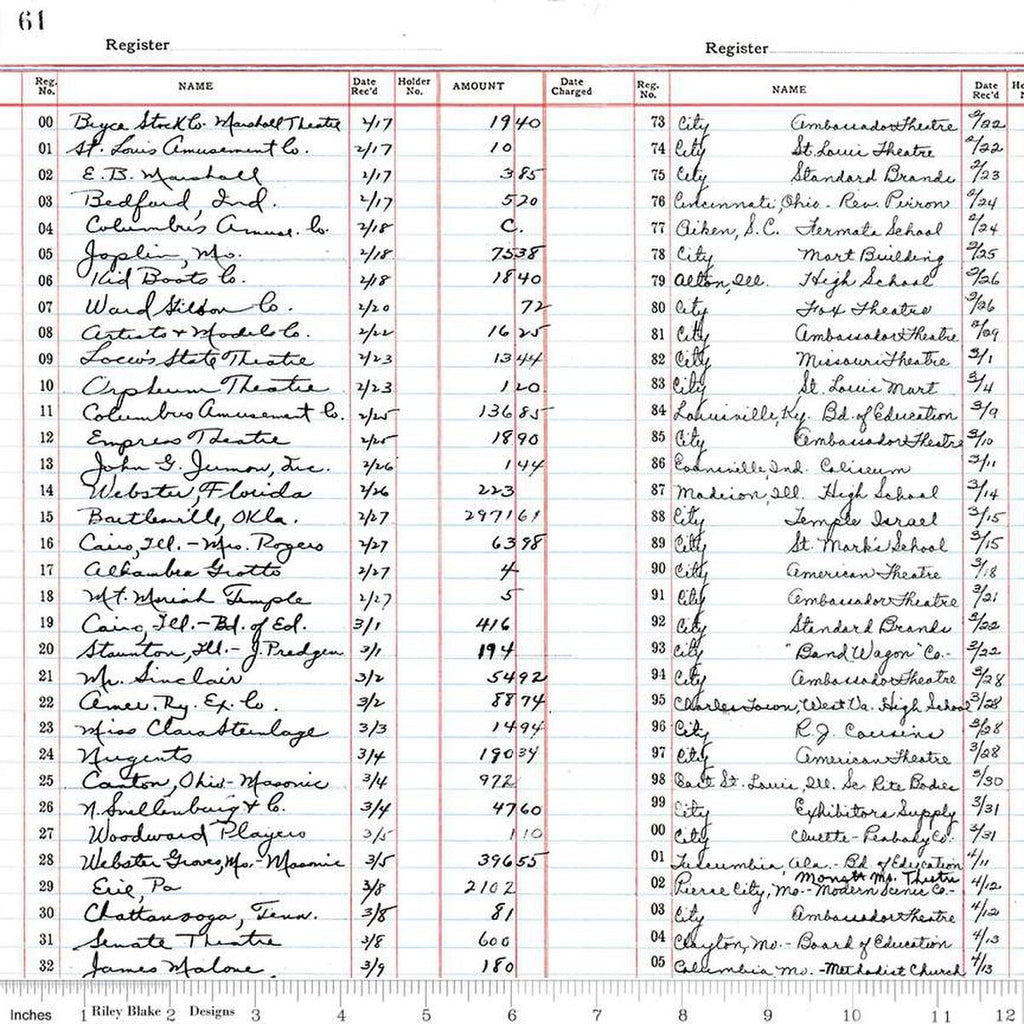 61
Register Register
Reg. No. NAME Date Rec'd Holder No. AMOUNT Date Charged Reg. No. NAME Date Rec'd
00 Bryce Stock Co. Marshall Theatre 2/17 19 40
01 St. Louis Amusement Co. 2/17 10
02 E. B. Marshall 2/17 3 85
03 Bedford, Ind. 2/17 5 20
04 Columbus Amuse. Co. 2/18 C.
05 Joplin, Mo. 2/18 75 38
06 Kid Boots Co. 2/18 18 40
07 Ward Co. 2/20 72
08 Artists & Models Co. 2/22 16 25
09 Loew's State Theatre 2/23 13 44
10 Orpheum Theatre 2/23 1 20
11 Columbus Amusement Co. 2/25 136 85
12 Empress Theatre 2/25 18 90
13 John G. Inc. 2/26 1 44
14 Webster, Florida 2/26 223
15 Bartlesville, Okla. 2/27 2971 61
16 Cairo, Ill. - Mrs. Rogers 2/27 63 98
17 Alhambra Grotto 2/27 4
18 Mt. Moriah Temple 2/27 5
19 Cairo, Ill. - Bd. of Ed. 3/1 416
20 Staunton, Ill. - J. 3/1 194
21 Mr. Sinclair 3/2 54 92
22 Amer. Ry. Ex. Co. 3/2 88 74
23 Miss Clara Steinlage 3/3 14 94
24 Nugents 3/4 190 34
25 Canton, Ohio - Masonic 3/4 972
26 N. Snellenburg & Co. 3/4 47 60
27 Woodward Players 3/5 1 10
28 Webster Groves, Mo. - Masonic 3/5 396 55
29 Erie, Pa 3/8 2102
30 Chattanooga, Tenn. 3/8 81
31 Senate Theatre 3/8 600
32 James Malone 3/9 180
73 City Ambassador Theatre 2/22
74 City St. Louis Theatre 2/22
75 City Standard Brands 2/23
76 Cincinnati, Ohio - Rev. 2/24
77 Aiken, S.C. Fermata School 2/24
78 City Mart Building 2/25
79 Alton, Ill. High School 2/26
80 City Fox Theatre 2/26
81 City Ambassador Theatre 2/29
82 City Missouri Theatre 3/1
83 City St. Louis Mart 3/4
84 Louisville, Ky. Bd. of Education 3/9
85 City Ambassador Theatre 3/10
86 Evansville, Ind. Coliseum 3/11
87 Madison, Ill. High School 3/14
88 City Temple Israel 3/15
89 City St. Mark's School 3/15
90 City American Theatre 3/18
91 City Ambassador Theatre 3/21
92 City Standard Brands 3/22
93 City "Band Wagon" Co. - 3/22
94 City Ambassador Theatre 3/28
95 Charles Town, West Va. High School 3/28
96 City R.J. Cousins 3/28
97 City American Theatre 3/28
98 East St. Louis, Ill. Sc. Rite Bodies 3/30
99 City Exhibitors Supply 3/31
00 City Cluett - Peabody Co. 3/31
01 Tuscumbia, Ala. - Bd. of Education 4/11
Monett Mo. Theatre
02 Pierce City, Mo. - Modern Scenic Co. - 4/12
03 City Ambassador Theatre 4/12
04 Clayton, Mo. - Board of Education 4/13
05 Columbia Mo. - Methodist Church 4/13
Inches 1 Riley Blake 2 Designs 3 4 5 6 7 8 9 10 11 12